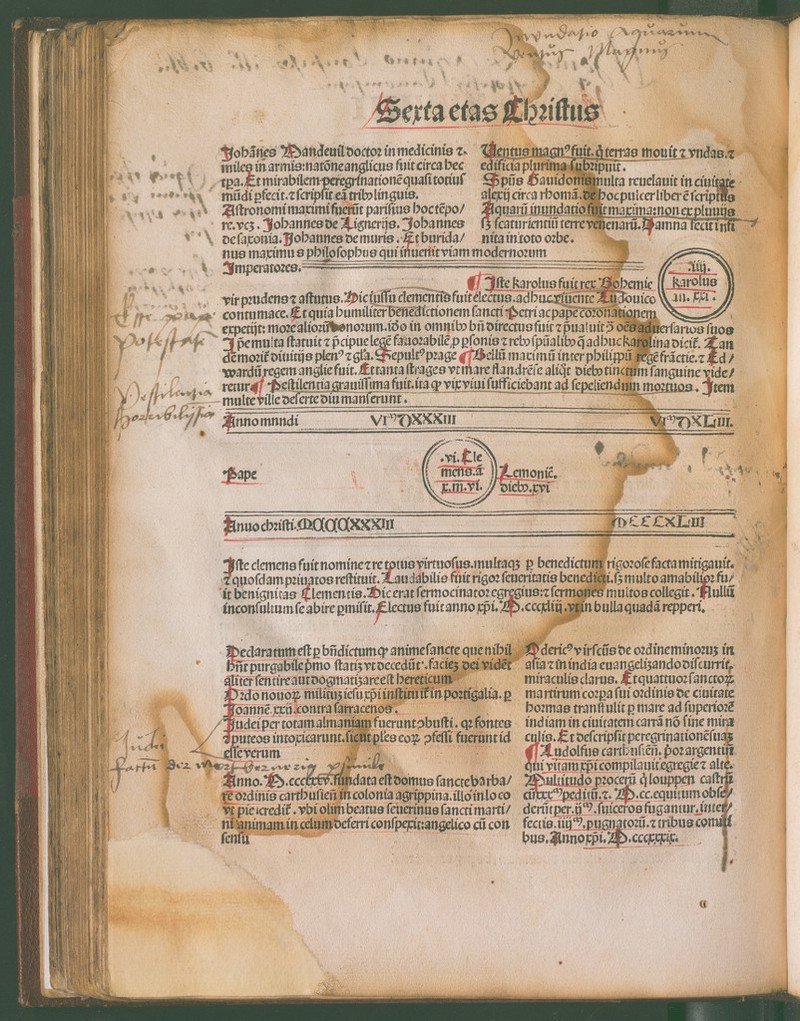 Inundatio Aquarum
Ventus Magnus
Sexta etas Christus
Johānes Mandeuil doctor in medicinis ⁊
miles in armis: natōne anglicus fuit circa hec
tpa. Et mirabilem peregrinationē quasi totius
mūdi pfecit. ⁊ scripsit eā tribꝰ linguis.
Astronomi maximi fuerūt parisius hoc tēpo/
re. vcꝫ. Johannes de Lignerijs. Johannes
de saxonia. Johannes de muris. Et burida/
nus maximus philosophus qui inuenit viam modernorum
Uentus magnꝰ fuit. q̄ terras mouit ⁊ vndas. ⁊
edificia plurima subripuit.
Spūs Gauidonis multa reuelauit in ciuitate
alexij circa rhomā. de hoc pulcer liber ē scriptus
Aquarū inundatio fuit maxima: non ex pluuijs
sꝫ scaturientiū terre venenarū. Damna fecit infi
nita in toto orbe.
Imperatores.
.iiij.
karolus
an. xxi.
¶ Iste karolus fuit rex Bohemie
vir prudens ⁊ astutus. Hic iussu clementis fuit electus. adhuc viuente Ludouico
contumace. Et quia humiliter benedictionem sancti Petri ac pape coronationem
expetijt: more aliorū bonorum. iō in omnibꝰ bn̄ directus fuit ⁊ pualuit ꝯ oēs aduersarios suos
Ipe multa statuit ⁊ pcipue legē fauorabilē p psonis ⁊ rebꝰ spūalibꝰ q̄ adhuc karolina dicit̄. Tan
dē morit̄ diuitijs plenꝰ ⁊ gla. Sepultꝰ prage ¶ Bellū maximū inter philippū regē frācie. ⁊ Ed/
wardū regem anglie fuit. Et tanta strages vt mare flandrēse aliqͥt diebꝰ tinctum sanguine vide/
retur ¶ Pestilentia grauissima fuit. ita ꝙ vix viui sufficiebant ad sepeliendum mortuos. Item
multe ville deserte diu manserunt.
Esse papa
potestate
Pestilentia
horribilissia
Anno mundi VIᵐ DXXXIII VIᵐ DXLIII.
Pape
.vi. Cle
mens. ā
x. m. vi.
Lemonic̄.
diebꝰ. xvi
Anno christi. MCCCXXXIII MCCCXLIII
Iste clemens fuit nomine ⁊ re totus virtuosus. multaqꝫ p benedictum rigorose facta mitigauit.
⁊ quosdam priuatos restituit. Laudabilis fuit rigor seueritatis benedicti. sꝫ multo amabilior fu/
it benignitas Clementis. Hic erat sermocinator egregius: ⁊ sermones multos collegit. Nullū
inconsultum se abire pmisit. Electus fuit anno xp̄i. M.cccxliij. vt in bulla quadā repperi.
Declaratum est p bn̄dictum ꝙ anime sancte que nihil
hn̄t purgabile pmo statiꝫ vt decedūt. facieꝫ dei vidēt
qͣliter sentire aut dogmatizare est hereticum
Ordo nouoꝝ militum iesu xp̄i instituit̄ in portigalia. p
Joannē. xxij. contra sarracenos.
Judei per totam almaniam fuerunt ꝯbusti. qꝛ fontes
⁊ puteos intoxicarunt. sicut ples eoꝝ ꝯfessi fuerunt id
esse verum
Anno. M.ccccxxxv. fundata est domus sancte barba/
re ordinis carthusien̄ in colonia agrippina. illo in loco
vt pie credit̄. vbi olim beatus seuerinus sancti marti/
ni animam in celum deferri conspexit: angelico cū con
sensu
Judei
Odericꝰ vir scūs de ordine minoruꝫ in
asia ⁊ in india euangelizando discurrit.
miraculis clarus. Et quattuor sanctoꝝ
martirum corpa sui ordinis de ciuitate
hormas transtulit p mare ad superiorē
indiam in ciuitatem carrā nō sine mira
culis. Et descripsit peregrinationē suaꝫ
¶ Ludolfus carthusiēn̄. por argentin̄
qui vitam xp̄i compilauit egregie ⁊ alte.
Multitudo pcerū q̄ louppen castrū
cū xxxᵐ peditū. ⁊. M.cc. equitum obse/
derūt per. iijᵐ. suiceros fugantur. inter/
fectis. iiijᵐ. pugnatorū. ⁊ tribus comiti
bus. Anno xp̄i. M.cccxxxix.